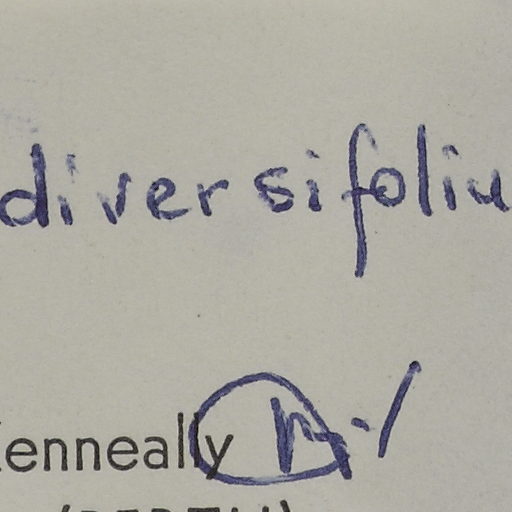 diversifoliu
Kenneally
(PERTH)